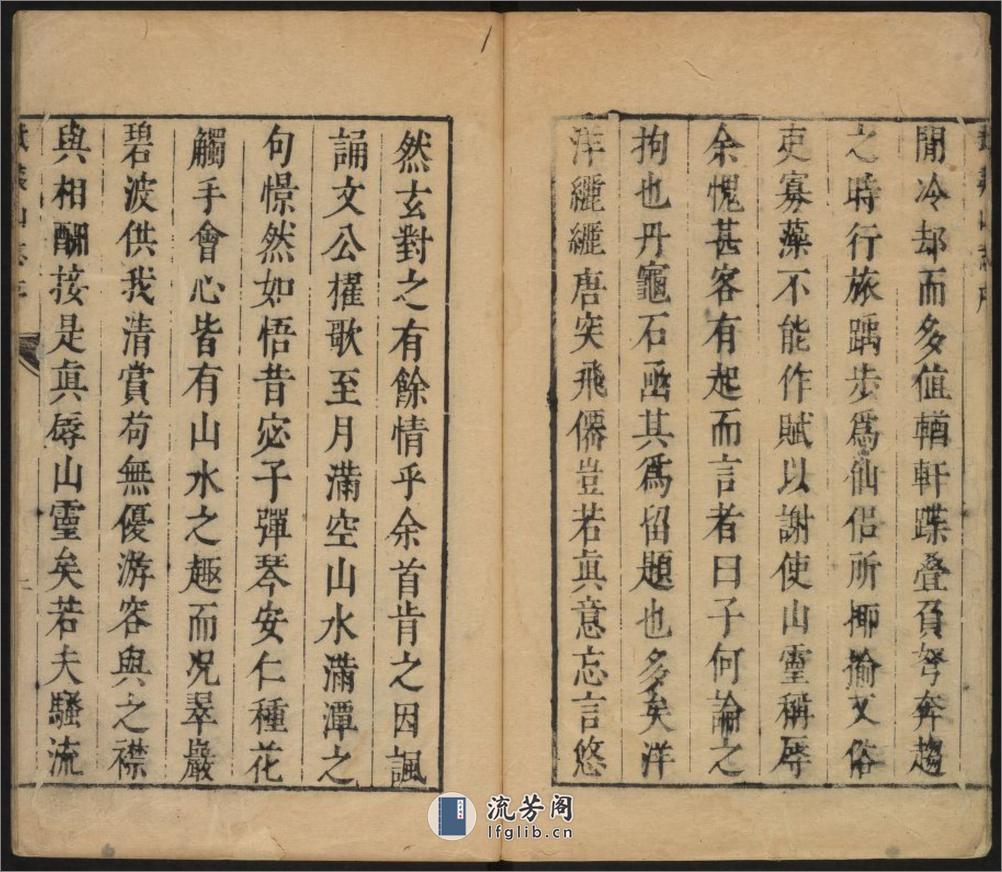 閒冷却而多值輶軒蹀叠負弩奔趨
之時行旅踽步爲仙侣所揶揄又俗
吏寡藻不能作賦以謝使山靈稱辱
余愧甚客有起而言者曰子何論之
拘也丹龜石函其爲留題也多矣洋
洋纚纚唐突飛僊豈若眞意忘言悠
然玄對之有餘情乎余首肯之因諷
誦文公櫂歌至月滿空山水滿潭之
句憬然如悟昔宓子彈琴安仁種花
觸手會心皆有山水之趣而况翠巖
碧波供我清賞苟無優游容與之襟
與相酬接是眞辱山靈矣若夫騷流
流芳阁
lfglib.cn